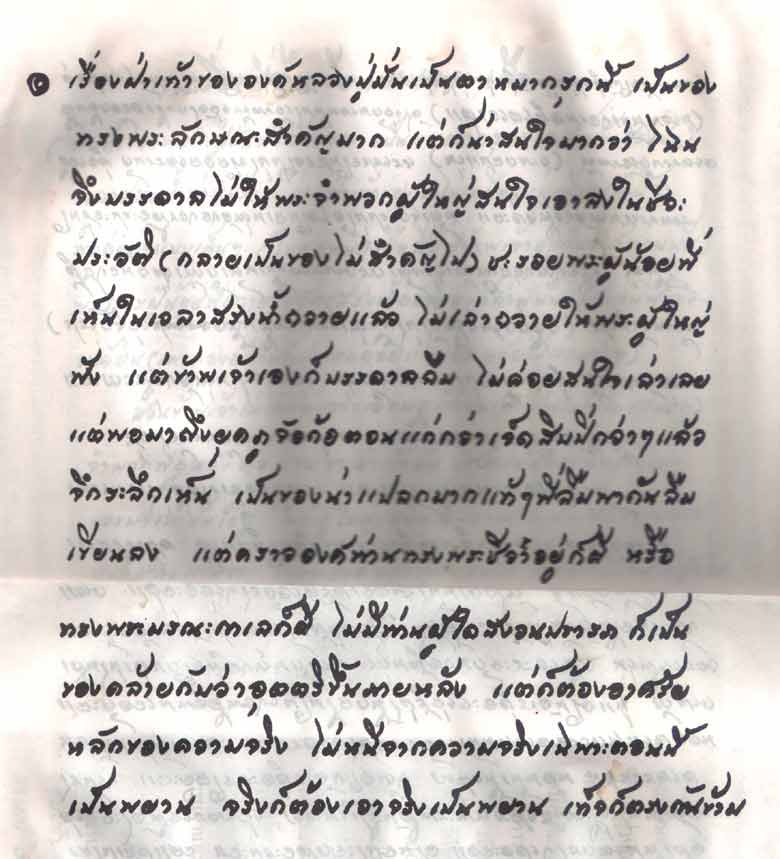 ๑ เรื่องฝ่าเท้าขององค์หลวงปู่มั่นเป็นตาหมากรุกนี้ เป็นของ
ทรงพระลักษณะสำคัญมาก แต่ก็น่าสนใจมากว่า ไฉน
จึงบรรดาลไม่ให้พระจำพวกผู้ใหญ่สนใจเอาลงในชีวะ
ประวัติ (กลายเป็นของไม่สำคัญไป) ชะรอยพระผู้น้อยที่
เห็นในเวลาสรงน้ำถวายแล้ว ไม่เล่าถวายให้พระผู้ใหญ่
ฟัง แต่ข้าพเจ้าเองก็บรรดาลลืม ไม่ค่อยสนใจเล่าเลย
แต่พอมาถึงยุคภูจ้อก้อตอนแก่กว่าเจ็ดสิบปีกว่าๆแล้ว
จึกระลึกเห็น เป็นของน่าแปลกมากแท้ๆที่ลืมพากันลืม
เขียนลง แต่คราวองค์ท่านทรงพระชีวิอยู่ก็ดี หรือ
ทรงพระมรณะกาเลก็ดี ไม่มีท่านผู้ใดสงวนปรารภ ก็เป็น
ของคล้ายกับว่าอุตตริขึ้นภายหลัง แต่ก็ต้องอาศรัย
หลักของความจริง ไม่หนีจากความจริงเฉพาะตอนนี้
เป็นพยาน จริงก็ต้องเอาจริงเป็นพยาน เท็จก็ตรงกันข้าม